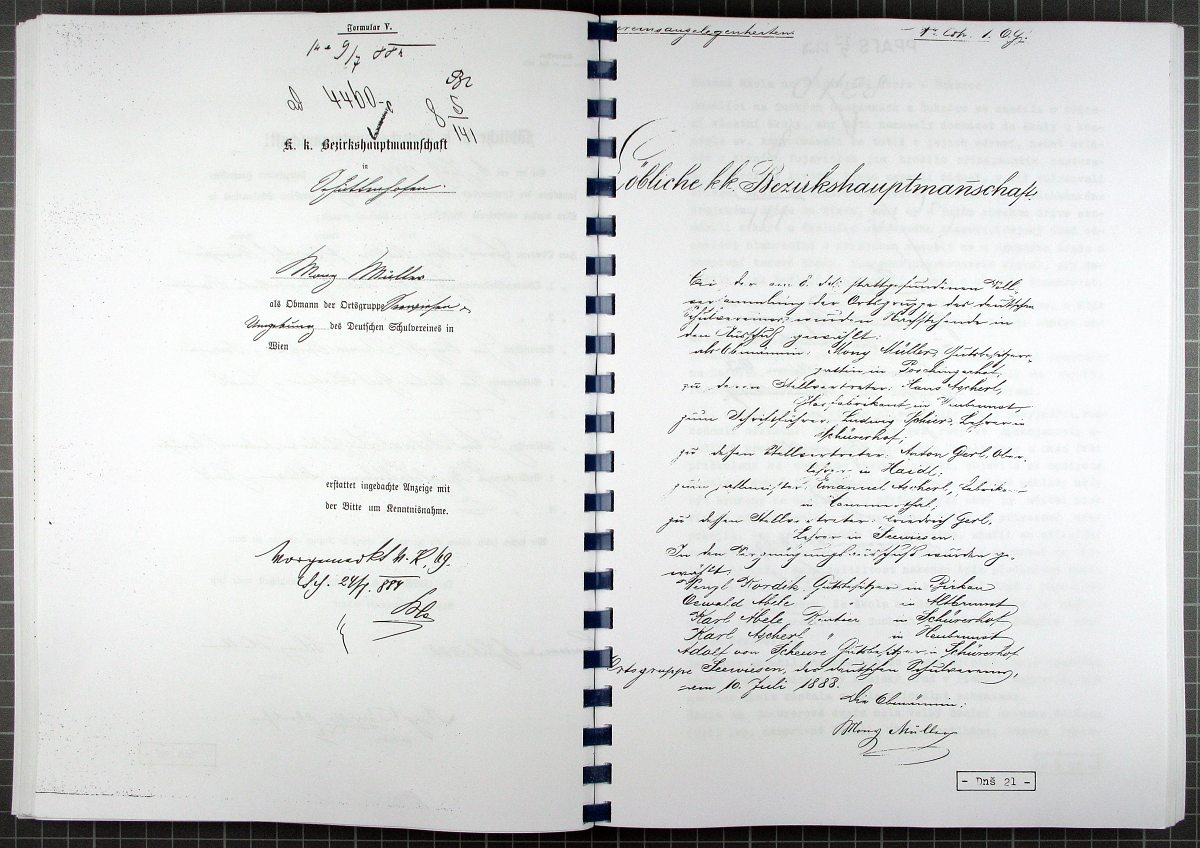 Formular V.
9/7 88
ad 4460
8/5
141
K. k. Bezirkshauptmannschaft
in
Schüttenhofen.
Mony Müller
als Obmann der Ortsgruppe Seewiesen &
Umgebung des Deutschen Schulvereines in
Wien
erstattet ingedachte Anzeige mit
der Bitte um Kenntnisnahme.
Vorgemerkt
24/7
Vereinsangelegenheiten
Löbliche k.k. Bezirkshauptmannschaft.
Bei der am 8. d. stattgefundenen Voll-
versammlung der Ortsgruppe des deutschen
Schulvereines wurden Nachstehende in
den Ausschuß gewählt:
als Obmännin: Mony Müller, Gutsbesitzers-
gattin in Poschingerhof,
zu deren Stellvertreter: Hans Ascherl,
Glasfabrikant in
zum Schriftführer: Ludwig Schier, Lehrer in
Schürerhof;
zu dessen Stellvertreter: Anton Gerl, Ober-
lehrer in Haidl;
zum Zahlmeister: Emanuel Ascherl, Fabrikant
in
zu dessen Stellvertreter: Friedrich Gerl,
Lehrer in Seewiesen.
In den Vergnügungsausschuß wurden ge-
wählt:
Wenzl Kordik, Gutsbesitzer in Birkau
Oswald Abele in Althurnst
Karl Abele, Rentier in Schürerhof
Karl Ascherl " in
Adolf von Scheure Gutsbesitzer in Schürerhof
Ortsgruppe Seewiesen, des deutschen Schulvereines,
am 10. Juli 1888.
Die Obmännin:
Mony Müller
- Dnš 21 -